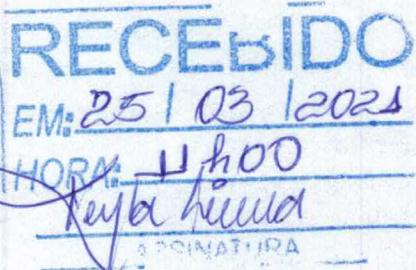 RECEBIDO
EM: 25 / 03 / 2021
HORA: 11h00
ASSINATURA